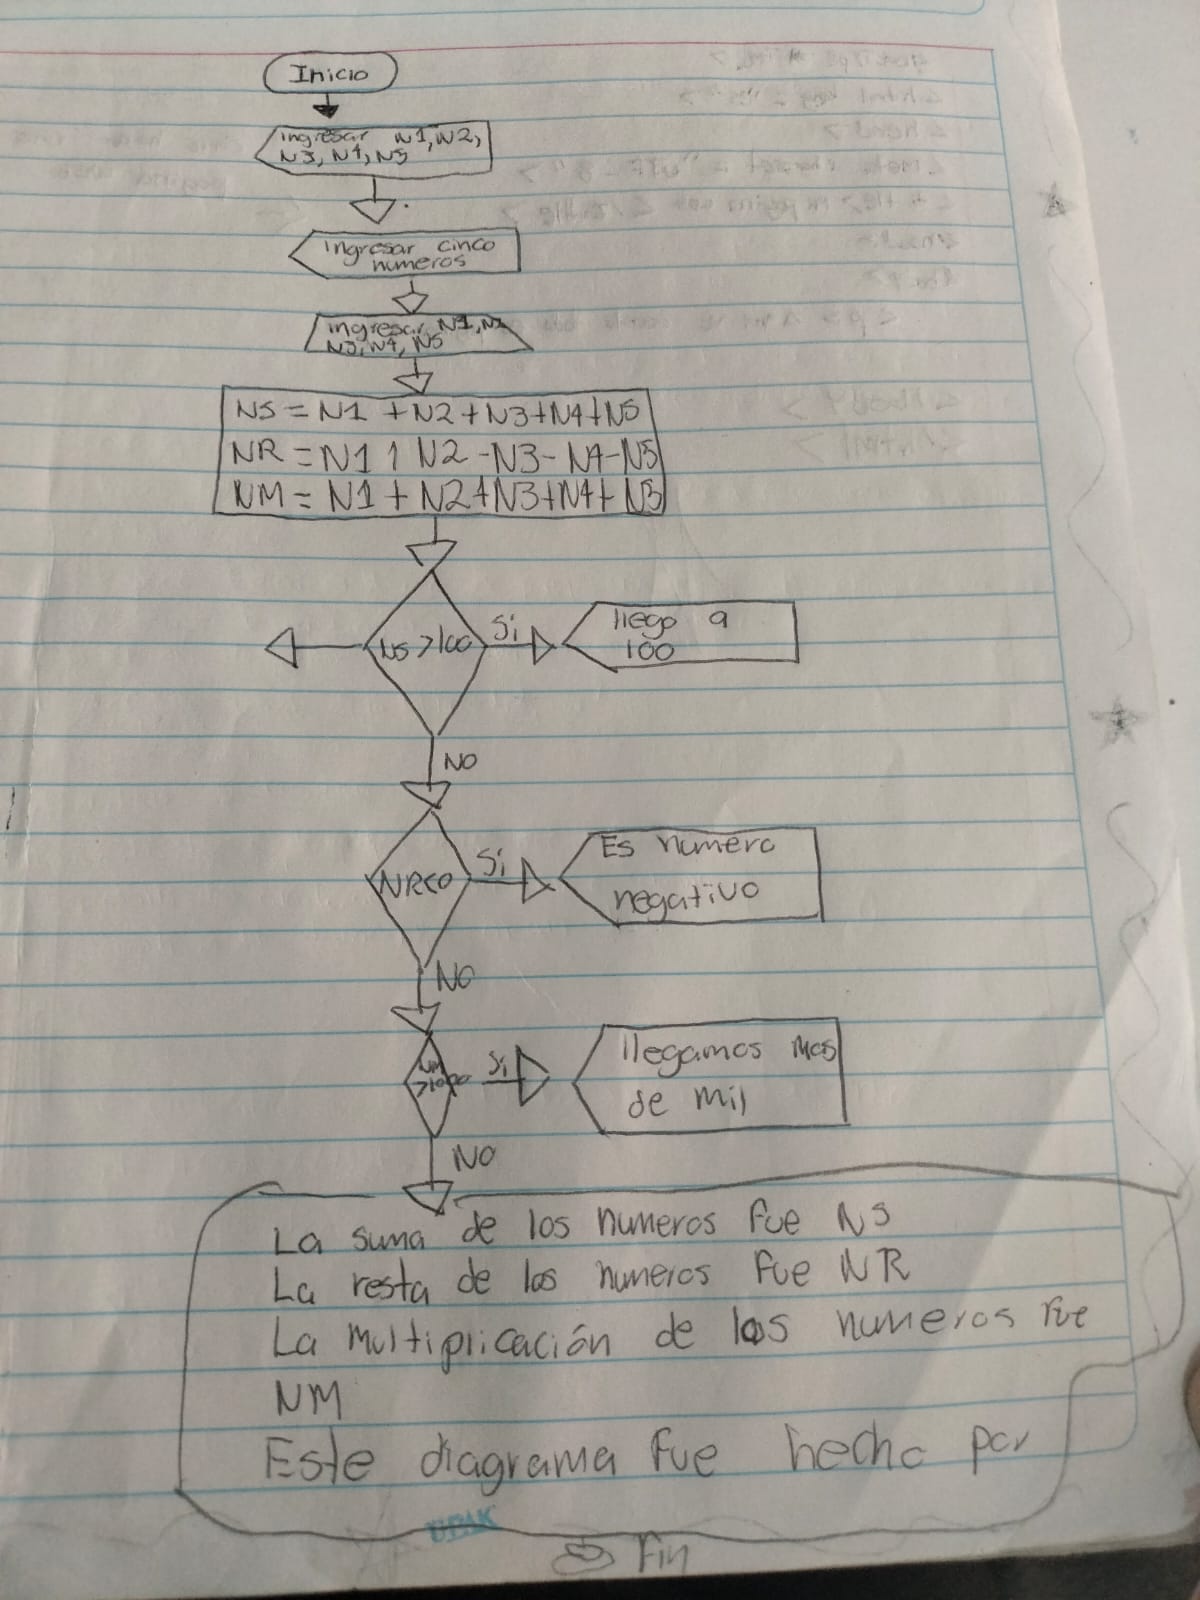 Inicio
ingresar N1, N2,
N3, N4, N5
Ingresar cinco
numeros
ingresar N1, N2
N3, N4, N5
NS = N1 + N2 + N3 + N4 + N5
NR = N1 1 N2 - N3 - N4 - N5
NM = N1 + N2 + N3 + N4 + N5
NS > 100
Si
llego a
100
NO
NR<0
Si
Es numero
negativo
NO
NM
>1000
Si
llegamos mas
de mil
NO
La suma de los numeros fue NS
La resta de los numeros fue NR
La multiplicación de los numeros fue
NM
Este diagrama fue hecho por
UPAK
Fin